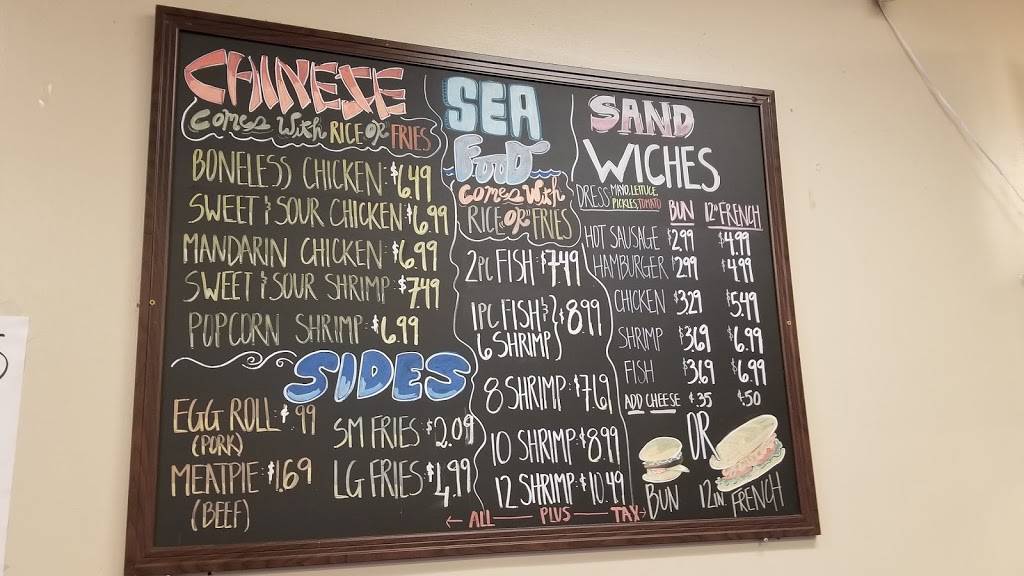 CHINESE
Comes With RICE OR FRIES
BONELESS CHICKEN $6.49
SWEET & SOUR CHICKEN $6.99
MANDARIN CHICKEN $6.99
SWEET & SOUR SHRIMP $7.49
POPCORN SHRIMP $6.99
SIDES
EGG ROLL $.99
(PORK)
MEATPIE $1.69
(BEEF)
SM FRIES $2.09
LG FRIES $4.99
SEA
FOOD
Comes With
RICE OR FRIES
2PC FISH $7.49
1PC FISH & $8.99
6 SHRIMP
8 SHRIMP $7.69
10 SHRIMP $8.99
12 SHRIMP $10.49
SAND
WICHES
DRESS MAYO, LETTUCE,
PICKLES, TOMATO
BUN 12in FRENCH
HOT SAUSAGE $2.99 $4.99
HAMBURGER $2.99 $4.99
CHICKEN $3.29 $5.49
SHRIMP $3.69 $6.99
FISH $3.69 $6.99
ADD CHEESE $.35 $.50
OR
BUN 12IN. FRENCH
← ALL — PLUS — TAX →